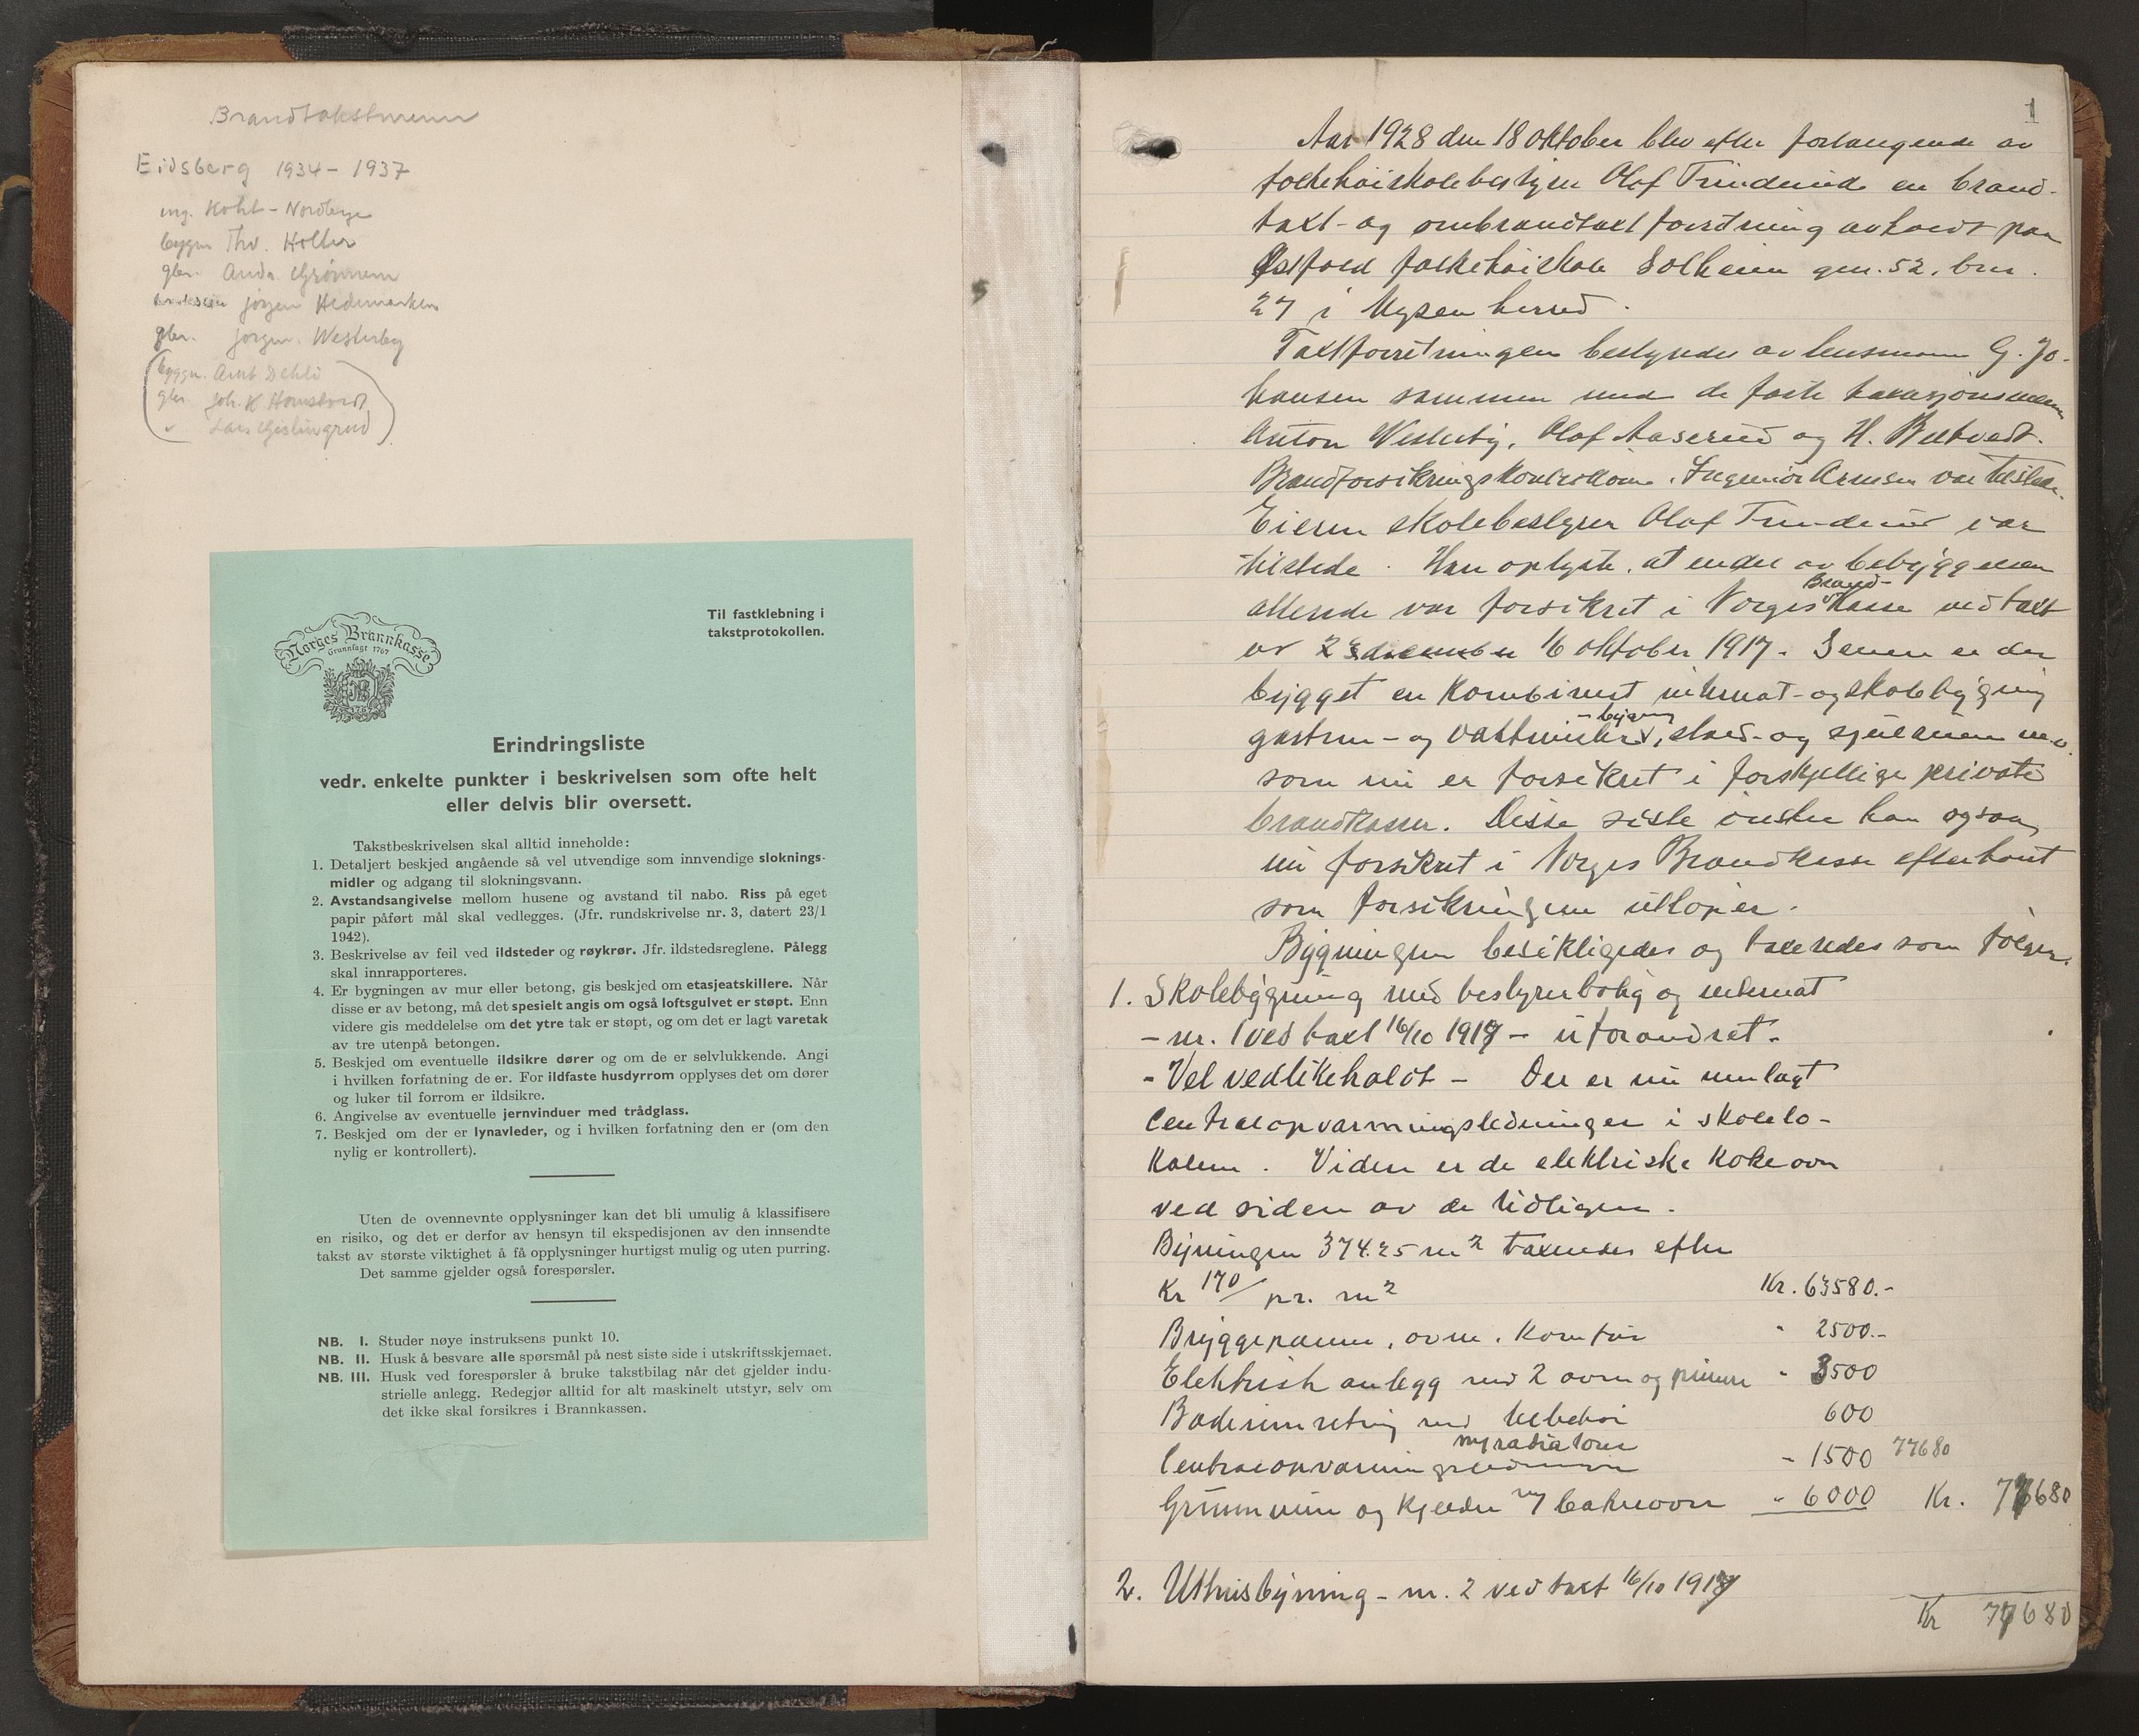 Brandtakstmenn
Eidsberg 1934 - 1937
ing. Kohl - Nordberg
byggm Thv. Holler
gbr. Ands. Grønnem
Jørgen Hedemarken
gbr. Jørgen Westerby
(byggm. Arnt Dehli
gbr. Joh. K Homstvedt
" Lars Gislingrud)
Til fastklebning i
takstprotokollen.
Norges Brannkasse
Grunnlagt 1767
NB
1767
Erindringsliste
vedr. enkelte punkter i beskrivelsen som ofte helt
eller delvis blir oversett.
Takstbeskrivelsen skal alltid inneholde:
1. Detaljert beskjed angående så vel utvendige som innvendige sloknings-
midler og adgang til slokningsvann.
2. Avstandsangivelse mellom husene og avstand til nabo. Riss på eget
papir påført mål skal vedlegges. (Jfr. rundskrivelse nr. 3, datert 23/1
1942).
3. Beskrivelse av feil ved ildsteder og røykrør. Jfr. ildstedsreglene. Pålegg
skal innrapporteres.
4. Er bygningen av mur eller betong, gis beskjed om etasjeatskillere. Når
disse er av betong, må det spesielt angis om også loftsgulvet er støpt. Enn
videre gis meddelelse om det ytre tak er støpt, og om det er lagt varetak
av tre utenpå betongen.
5. Beskjed om eventuelle ildsikre dører og om de er selvlukkende. Angi
i hvilken forfatning de er. For ildfaste husdyrrom opplyses det om dører
og luker til forrom er ildsikre.
6. Angivelse av eventuelle jernvinduer med trådglass.
7. Beskjed om der er lynavleder, og i hvilken forfatning den er (om den
nylig er kontrollert).
Uten de ovennevnte opplysninger kan det bli umulig å klassifisere
en risiko, og det er derfor av hensyn til ekspedisjonen av den innsendte
takst av største viktighet å få opplysninger hurtigst mulig og uten purring.
Det samme gjelder også forespørsler.
NB. I. Studer nøye instruksens punkt 10.
NB. II. Husk å besvare alle spørsmål på nest siste side i utskriftsskjemaet.
NB. III. Husk ved forespørsler å bruke takstbilag når det gjelder indu-
strielle anlegg. Redegjør alltid for alt maskinelt utstyr, selv om
det ikke skal forsikres i Brannkassen.
1
Aar 1928 den 18 oktober blev efter forlangende av
folkehøiskolebestyrer Olaf Trinderud en brand-
taxt- og ombrandtaxt forretning avholdt paa
Østfold folkehøiskole Solheim gnr. 52. bnr.
27 i Mysen herred.
Taxtforretningen bestyredes av lensmann G. Jo-
hansen sammen med de faste taxasjonsmenn
Anton Westerby, Olaf Aaserud og H. Butvedt.
Brandforsikringskontrolløren. Ingeniør Arnesen var tilstede.
Eieren skolebestyrer Olaf Trinderud var
tilstede. Han oplyste, at endel av bebyggelsen
allerede var forsikret i Norges Brand- Kasse ved taxt
av 28 december 16 oktober 1917. Senere er der
bygget en kombinert internat- og skolebygning
gartner- og vaktmester -bygning, sted- og
som nu er forsikret i forskjellige private
brandkasser. Disse siste ønsker han ogsaa
nu forsikret i Norges Brandkasse efterhvert
som forsikringene utløper.
Bygningen besiktigedes og taxeredes som følger.
1. Skolebygning med bestyrerbolig og internat
- nr. 1 ved taxt 16/10 1917 - uforandret.
- Vel vedlikeholdt - Der er nu innlagt
Centralopvarmingsledninger i skolelo-
kalene. Videre er de elektriske kokeovn
ved siden av de tidligere.
Bygningen 374.25 m2 taxeredes efter
Kr 170/ pr. m2 Kr. 63580.-
Bryggepanne, ovne, komfür " 2500.-
Elektrisk anlegg med 2 ovne og pumpe " 3500
Badeinnretning med tilbehør 600
Centralopvarmingsledninger m/ radiatorer - 1500 77680
Grunnmur og kjelder m/ bakerovn " 6000 Kr. 77680
2. Uthusbygning - nr. 2 ved taxt 16/10 1917
Kr 77680